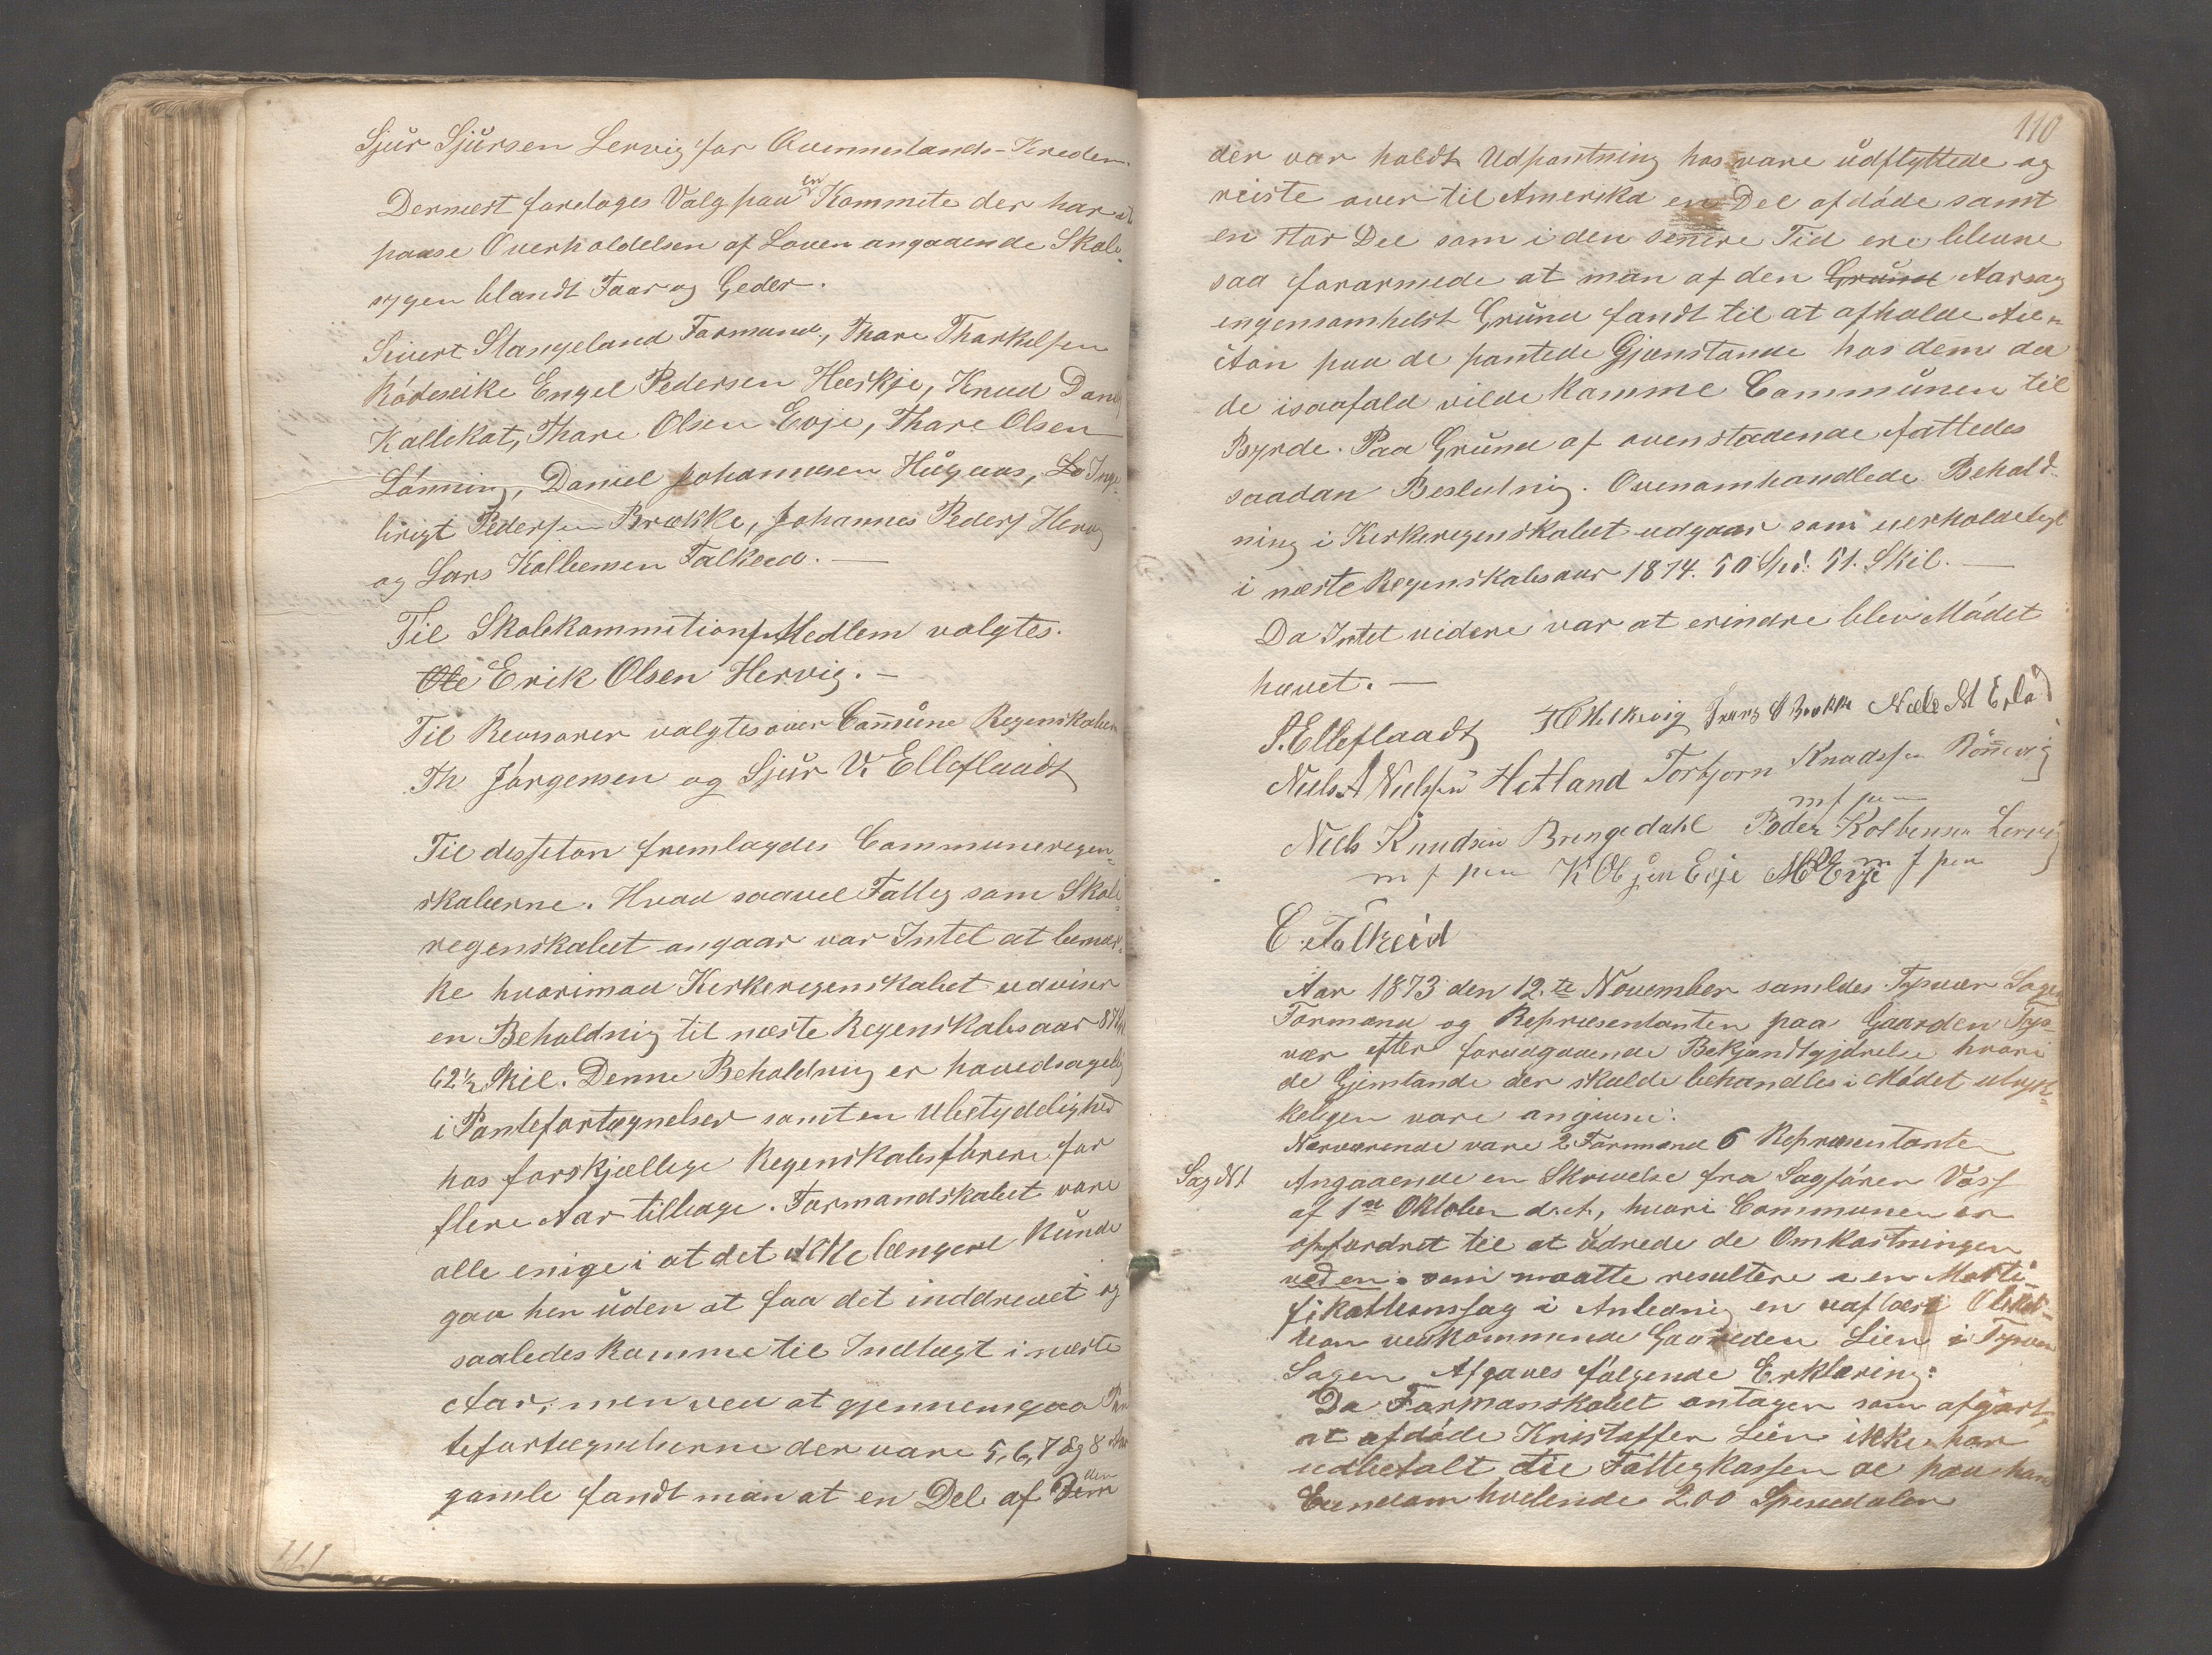 Sjur Sjursen Lervig for Ovennerlands-Kredsen
Dernæst foretoges Valg paa en Kommite der har at
paase Overholdelsen af Loven angaaende Skab-
sygen blandt Faar og Geder.
Sivert Stangeland Formand, Thore Thorkelsen
Rödseike Engel Pedersen Heskje, Knud Dan
Kallekot, Thore Olsen Evje, Thore Olsen
Lönning, Daniel Johannesen Hugaas, Inge-
brigt Pedersen Brække, Johannes Peders Hervig
og Lars Kolbensen Falkeid. —
Til Skolekommitions Medlem valgtes.
Ole Erik Olsen Hervig. —
Til Revisorer valgtes over Commune Regenskaben
Th Jörgensen og Sjur V. Elleflaadt
Til desseton fremlagdes Communeregen-
skaberne. Hvad saavel Fattig som Skole-
regenskabet angaar var Intet at bemær-
ke hvorimod Kirkeregenskabet udviser
en Beholdnig til næste Regenskabsaar
62½ Skil. Denne Beholdning er hovedsagelig
i Panteforteegnelser samt en Ubetydelighed
hos forskjællige Regenskabsförere for
flere Aar tilbage. Formandskabet vare
alle enige i at det ikke længere kunde
gaa hen uden at faa det inddrevet og
saaledes komme til Indtægt i næste
Aar, men ved at gjennemgaa Pan
tefortegnelserne der vare 5, 6, 7 og 8 Aar
gamle fandt man at en Del af Dem den
111
110
der var holdt Udpantning hos vare udflyttede og
reiste over til Amerika en Del afdöde samt
en stor Del som i den senere Tid ere blevne
saa forarmede at man af den Grund Aarsag
ingensomhelst Grund fandt til at afholde Auk-
tion paa de pantede Gjenstande hos dem da
de isaafald vilde komme Communen til
Byrde. Paa Grund af ovenstaaende fattedes
saadan Beslutnig. Ovenomhandlede Behold-
ning i Kirkeregenskabet udgaar som uerholdeligt
i næste Regenskabsaar 1874. 50 Spd. 51. Skil. —
Da Intet videre var at erindre blev Mödet
hævet. —
S. Elleflaadt
Niels A Nielsen Hetland Torbjorn Knudsen Rönnevig
m f pen
Niels Knudsen Bringedahl Peder Kolbensen Lervig
m f pen K Olsen Evje M O Evje m f pen
E. Falkeid
Aar 1873 den 12.te November samledes Tysvær Sogns
Formænd og Repræsentanten paa Gaarden Tys-
vær efter foradgaaende Bekjendtgjörelse hvori
de Gjenstande der skulde behandles i Mödet utryk-
keligen vare angivne.
Nærværende vare 2 Formænd 6 Repræsentanter
Sag N1 Angaaende en Skrivelse fra Sagförer Voss
af 1ste Oktober d. A., hvori Communen er
opfordret til at udrede de Omkostningen
ved en som maatte resultere a en Morti-
fikationssag i Anledning en
vedkommende Gaarden Lien i Tysvær
Sogen Afgaves fölgende Erklæring:
Da Formanskabet antager som afgjort
at afdöde Kristoffer Lien ikke har
udbetalt til Fattigkassen de paa hans
Eiendom hvilende 200 Spesiedaler